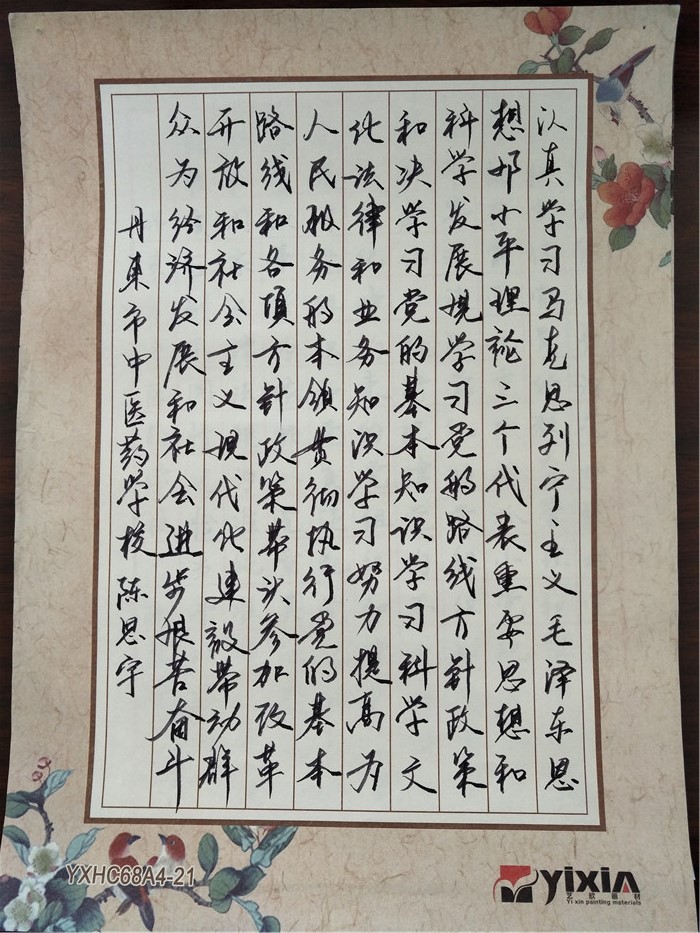 认真学习马克思列宁主义毛泽东思
想邓小平理论三个代表重要思想和
科学发展观学习党的路线方针政策
和决学习党的基本知识学习科学文
化法律和业务知识学习努力提高为
人民服务的本领贯彻执行党的基本
路线和各項方针政策带头参加改革
开放和社会主义现代化建設带动群
众为经济发展和社会进步艰苦奋斗
丹東市中医药学校 陈思宇
YXHC68A4-21
yixin
艺欣画材
Yi xin painting materials